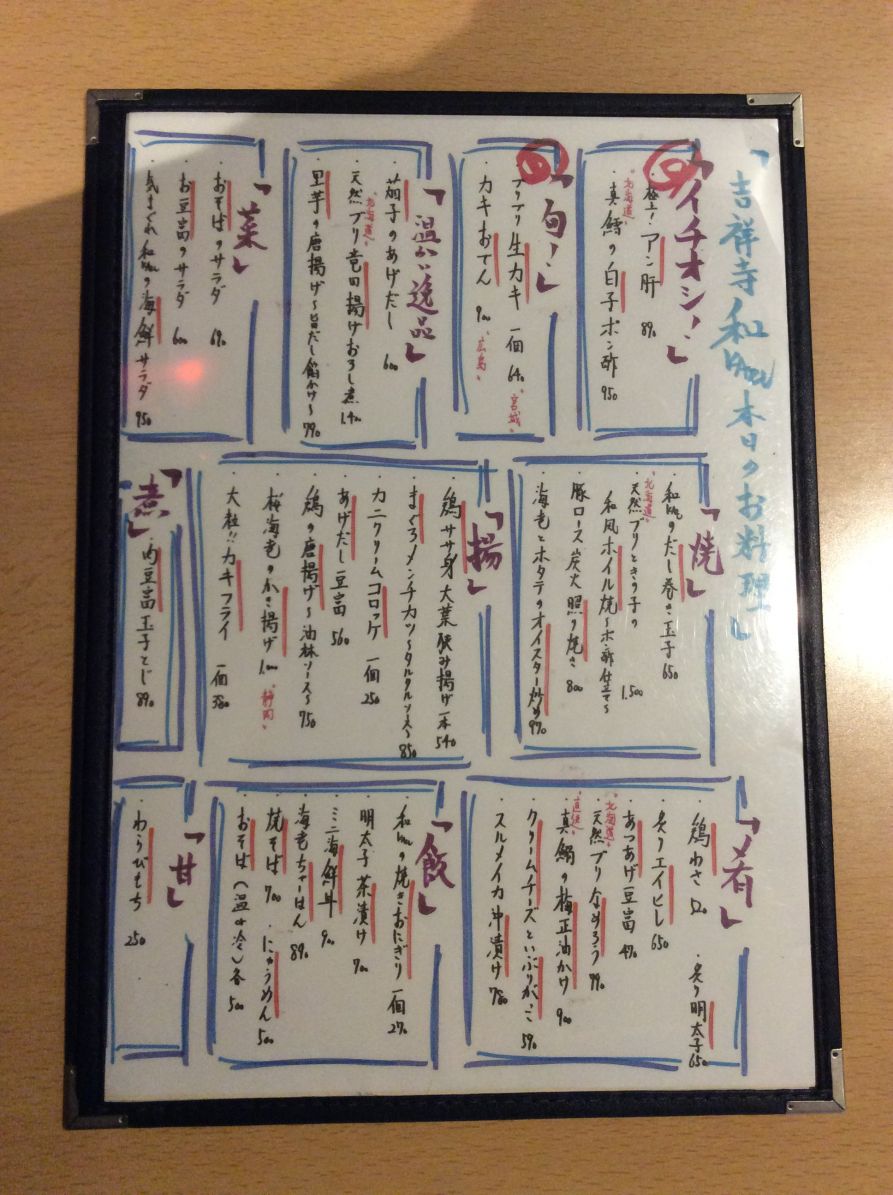 「吉祥寺 和 本日のお料理」
「イチオシ！」
・極上！アン肝 890
"北海道"
・真鱈の白子ポン酢 950
「旬！」
・プリプリ生カキ 一個 640 "宮城"
・カキおでん 900 "広島"
「温かい逸品」
・茄子のあげだし 600
"北海道"
・天然ブリ竜田揚げおろし煮 1,400
・里芋の唐揚げ〜旨だし餡かけ〜 790
「菜」
・おそばのサラダ 690
・お豆富のサラダ 600
・気まぐれ和の海鮮サラダ 950
「焼」
・和のだし巻き玉子 650
"北海道"
・天然ブリときの子の
和風ホイル焼〜ポン酢仕立て〜 1,500
・豚ロース炭火照り焼き 800
・海老とホタテのオイスター炒め 970
「揚」
・鶏ササ身大葉挟み揚げ 一本 540
・まぐろメンチカツ〜タルタルソース〜 850
・カニクリームコロッケ 一個 250
・あげだし豆富 560
・鶏の唐揚げ〜油林ソース〜 750
・桜海老のかき揚げ 1,000 "静岡"
・大粒!!カキフライ 一個 380
「煮」
・肉豆富玉子とじ 890
「肴」
・鶏わさ 520
・炙り明太子 650
・炙りエイヒレ 650
・あつあげ豆富 490
"北海道"
・天然ブリなめろう 990
・真鯛の梅正油かけ 900
・クリームチーズといぶりがっこ 590
・スルメイカ沖漬け 780
「飯」
・和の焼きおにぎり 一個 270
・明太子茶漬け 700
・ミニ海鮮丼 900
・海老ちゃーはん 890
・焼そば 700
・にゅうめん 500
・おそば（温or冷）各 500
「甘」
・わらびもち 250